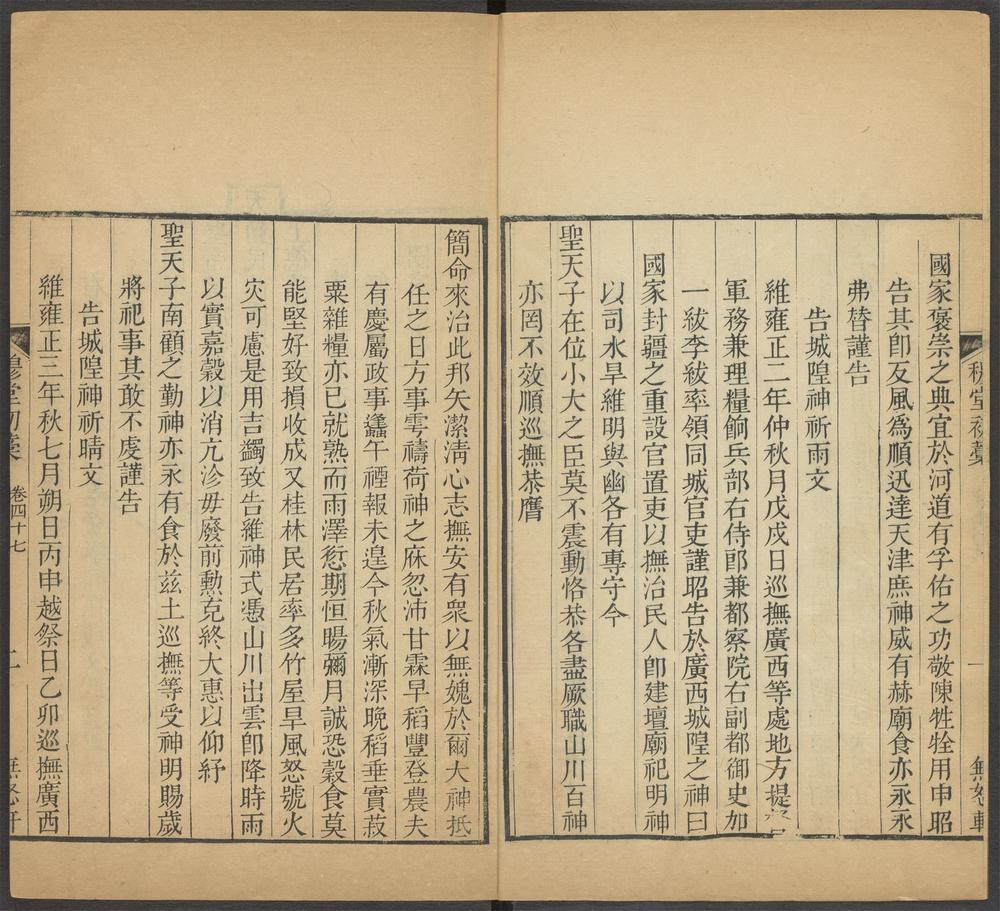 穆堂初藁
一
無怒軒
國家褒崇之典宜於河道有孚佑之功敬陳牲牷用申昭
告其卽反風爲順迅達天津庶神威有赫廟食亦永永
弗替謹告
告城隍神祈雨文
維雍正二年仲秋月戊戌日巡撫廣西等處地方提督
軍務兼理糧餉兵部右侍郎兼都察院右副都御史加
一級李紱率領同城官吏謹昭告於廣西城隍之神曰
國家封疆之重設官置吏以撫治民人卽建壇廟祀明神
以司水旱維明與幽各有專守今
聖天子在位小大之臣莫不震動恪恭各盡厥職山川百神
亦罔不效順巡撫恭膺
簡命來治此邦矢潔淸心志撫安有衆以無媿於爾大神抵
任之日方事雩禱荷神之庥忽沛甘霖早稻豐登農夫
有慶屬政事蠭午禋報未遑今秋氣漸深晚稻垂實菽
粟雜糧亦已就熟而雨澤愆期恒暘彌月誠恐穀食莫
能堅好致損收成又桂林民居率多竹屋旱風怒號火
灾可慮是用吉蠲致告維神式憑山川出雲卽降時雨
以實嘉穀以消亢沴毋廢前勳克終大惠以仰紓
聖天子南顧之勤神亦永有食於茲土巡撫等受神明賜歲
將祀事其敢不虔謹告
告城隍神祈晴文
維雍正三年秋七月朔日丙申越祭日乙卯巡撫廣西
穆堂初藁
卷四十七
二
無怒軒